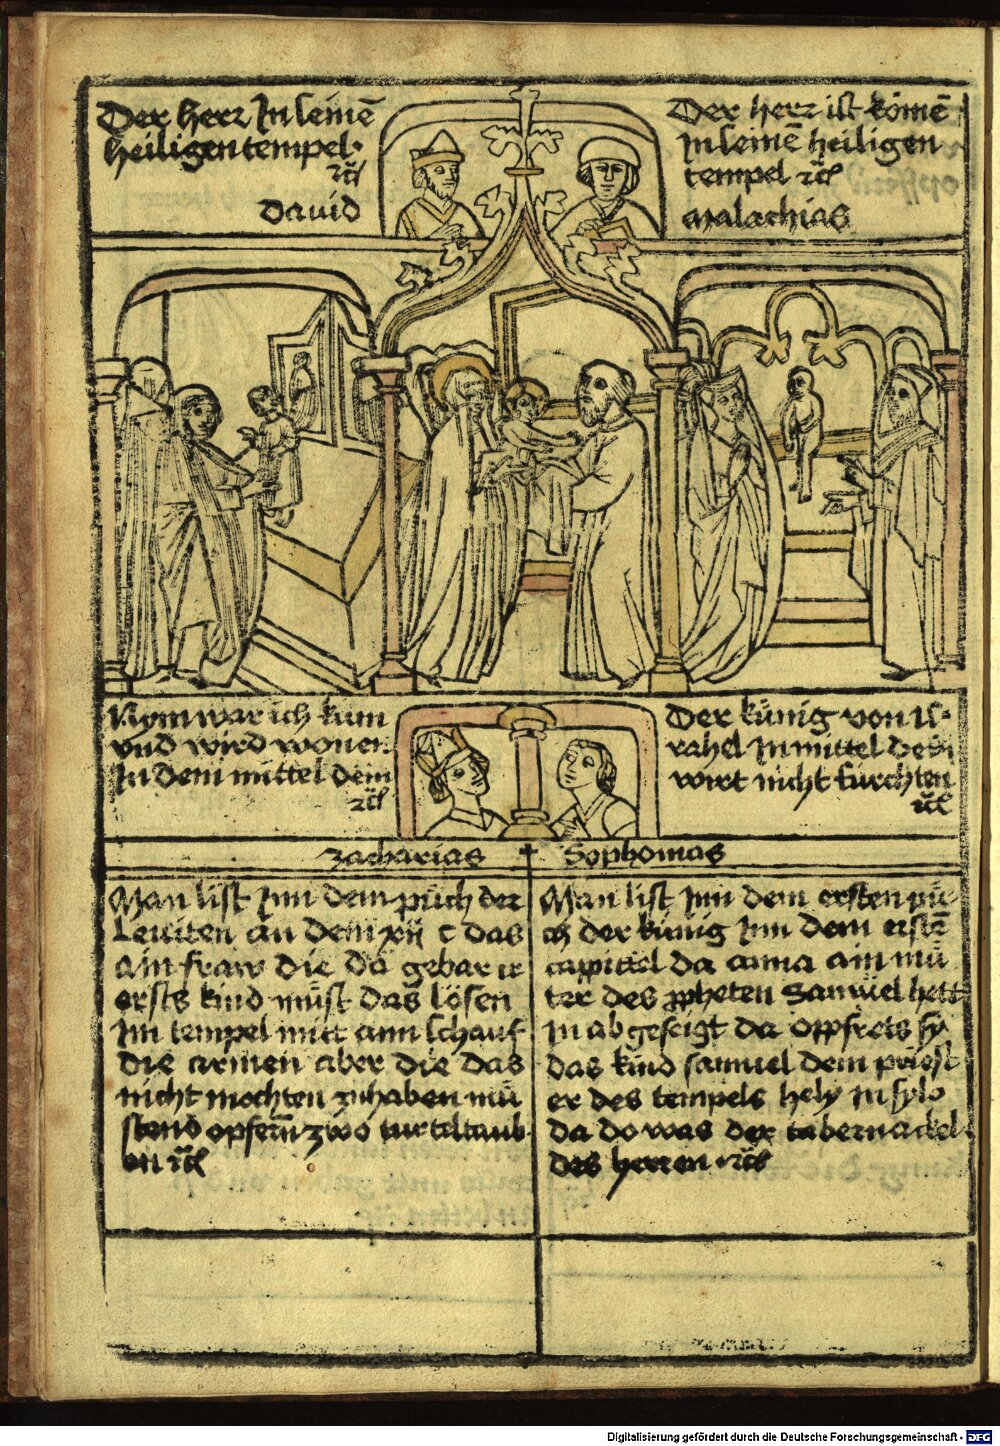 Der herr In seinē
heiligen tempel·
ꝛc̄
dauid
Der herr ist kömē
In seinē heiligen
tempel ꝛc̄
Malachias
Nym war ich kum
vnd wird wonen
In dem mittel dein
ꝛc̄
Der künig von Is·
rahel In mittel dein
wirt nicht furchten
ꝛc̄
Zacharias
Sophonias
Man list Inn dem půch der
Leuiten an dem xij c das
ain fraw die dā gebar ir
ersts kind můst das lösen
Im tempel mitt aim schauf
die armen aber die das
nicht mochten zuhaben mů
stend opfern zwo turteltaub
en ꝛc̄
Man list Inn dem ersten pů
ch der künig Inn dem erstē
capittel da anna ain mů
ter des ꝓpheten Samuel hett
In abgeseigt da opfrets sy
das kind samuel dem priest
er des tempels hely In sylo
da do was der tabernackel
des herren ·ꝛc̄
Digitalisierung gefördert durch die Deutsche Forschungsgemeinschaft - DFG